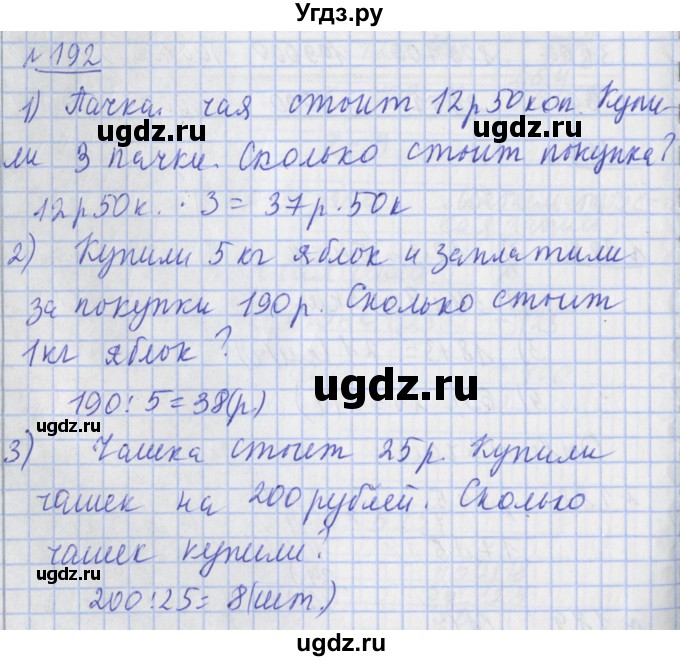 Угдз.ру
№ 192
1) Пачка чая стоит 12р 50коп. Купи-
ugdz.ru ugdz.ru
ли 3 пачки. Сколько стоит покупка?
12р 50к. · 3 = 37р. 50к
2) Купили 5 кг яблок и заплатили
ugdz.ru
за покупки 190р. Сколько стоит
1кг яблок?
ugdz.ru
190 : 5 = 38(р)
ugdz.ru
3) Чашка стоит 25р. Купили
чашек на 200 рублей. Сколько
ugdz.ru
чашек купили?
ugdz.ru
200 : 25 = 8(шт.)
ugdz.ru